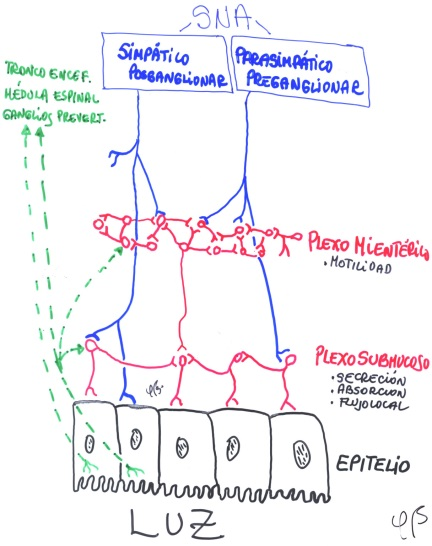 SNA
SIMPÁTICO
POSGANGLIONAR
PARASIMPÁTICO
PREGANGLIONAR
TRONCO ENCEF.
MÉDULA ESPINAL
GANGLIOS PREVERT.
PLEXO MIENTÉRICO
• MOTILIDAD
PLEXO SUBMUCOSO
• SECRECIÓN
• ABSORCIÓN
• FLUJO LOCAL
EPITELIO
LUZ